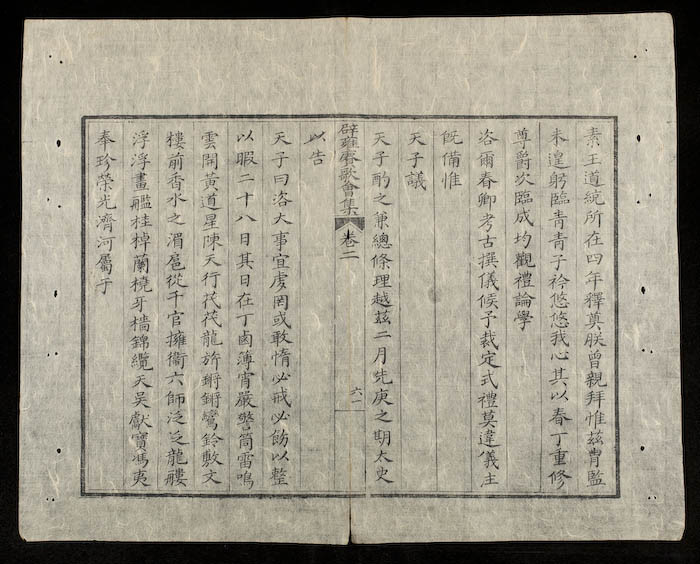 素王道統所在四年釋奠朕曾親拜惟茲胄監
未遑躬臨青青子衿悠悠我心其以春丁重修
尊爵次臨成均觀禮論學
洛爾春卿考古撰儀候予裁定式禮莫違儀主
旣備惟
天子議
天子酌之兼總條理越茲二月先庚之期太史
辟雍賡歌會集 卷二 六一
以告
天子曰洛大事宜虔罔或敢惰必戒必飭以整
以暇二十八日其日在丁鹵薄宵嚴警筒雷鳴
雲開黃道星陳天行茷茷龍旂鏘鏘鸞鈴敷文
樓前香水之湄扈從千官擁衞六師泛泛龍艛
浮浮畫艦桂棹蘭橈牙檣錦纜天吳獻寶馮夷
奉珍榮光濟河屬于